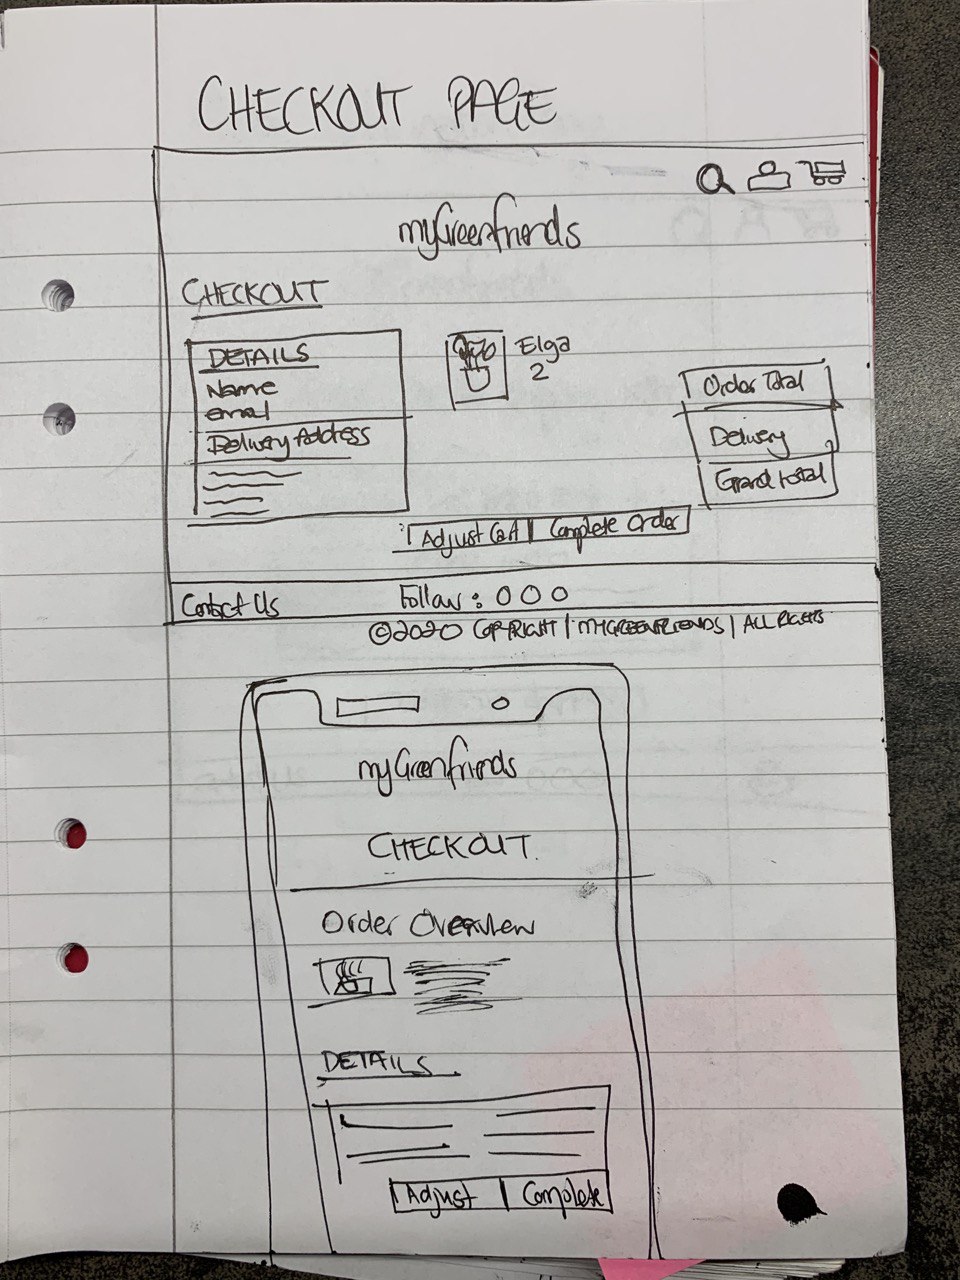 CHECKOUT PAGE
myGreenfriends
CHECKOUT
DETAILS
Name
email
Delivery Address
Elga
2
Order Total
Delivery
Grand total
Adjust Cart | Complete Order
Contact Us
Follow :
©2020 COPYRIGHT | MYGREENFRIENDS | ALL RIGHTS
myGreenfriends
CHECKOUT.
Order Overview
DETAILS
Adjust | Complete